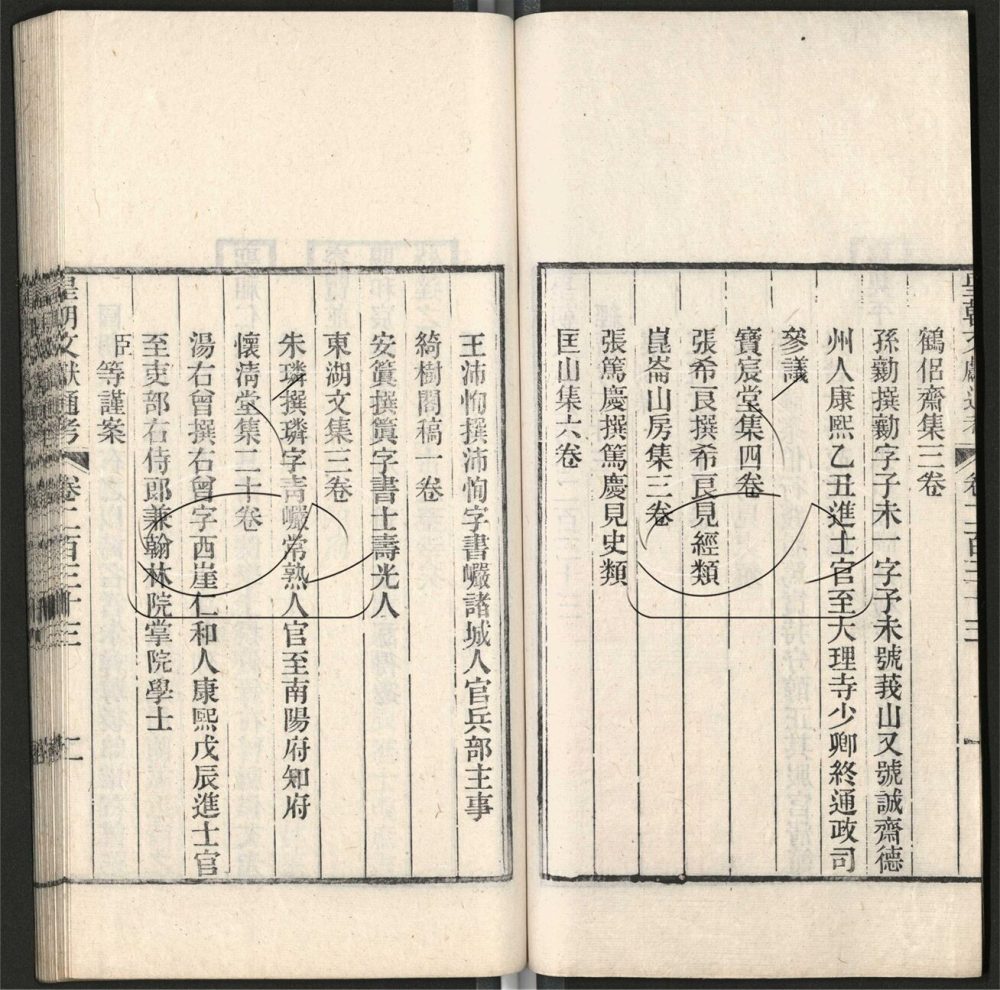 鶴侶齋集三卷
孫勷撰勷字子未一字予未號莪山又號誠齋德
州人康熙乙丑進士官至大理寺少卿終通政司
參議
寶宸堂集四卷
張希良撰希良見經類
崑崙山房集三卷
張篤慶撰篤慶見史類
匡山集六卷
王沛恂撰沛恂字書巖諸城人官兵部主事
綺樹閣稿一卷
安箕撰箕字書士壽光人
東湖文集三卷
朱璘撰璘字青巖常熟人官至南陽府知府
懷淸堂集二十卷
湯右曾撰右曾字西崖仁和人康熙戊辰進士官
至吏部右侍郎兼翰林院掌院學士
臣等謹案
皇朝文獻通考 卷二百三十三 二